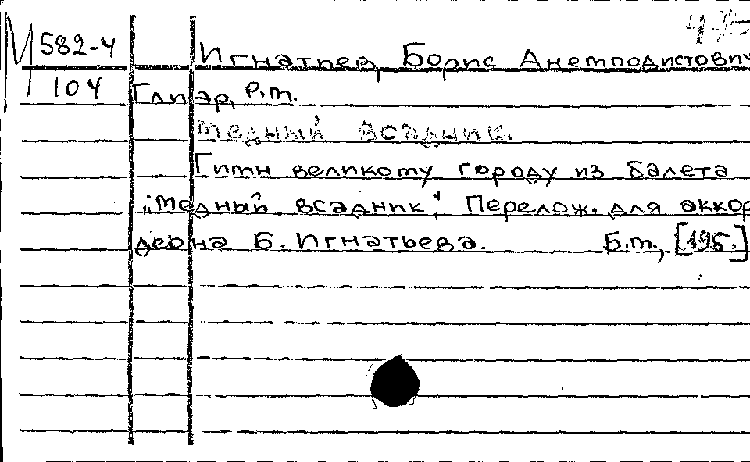 М 582-4 Игнатьев, Борис Анемподистович
104 Глиэр, Р.М.
Медный всадник.
Гимн великому городу из балета
„Медный всадник". Перелож. для аккор
деона Б. Игнатьева. Б.м., [195.]